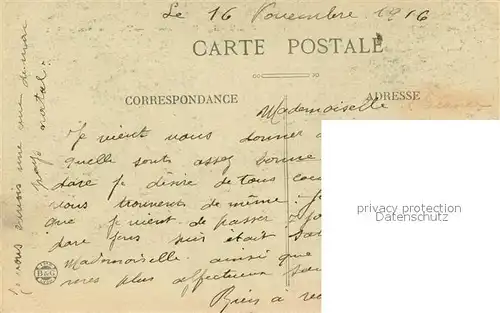 Le 16 Novembre 1916
CARTE POSTALE
CORRESPONDANCE
ADRESSE
Mademoiselle
Je vient vous donner
quelle sonts assez bonne
dare je désire de tous
vous trouvent de même.
que je vient de passer
dare puis était
Mademoiselle ainsi que
mes plus affectueux
Rien à
je vous envois une vue de mon
pays natal.
B&G
privacy protection
Datenschutz